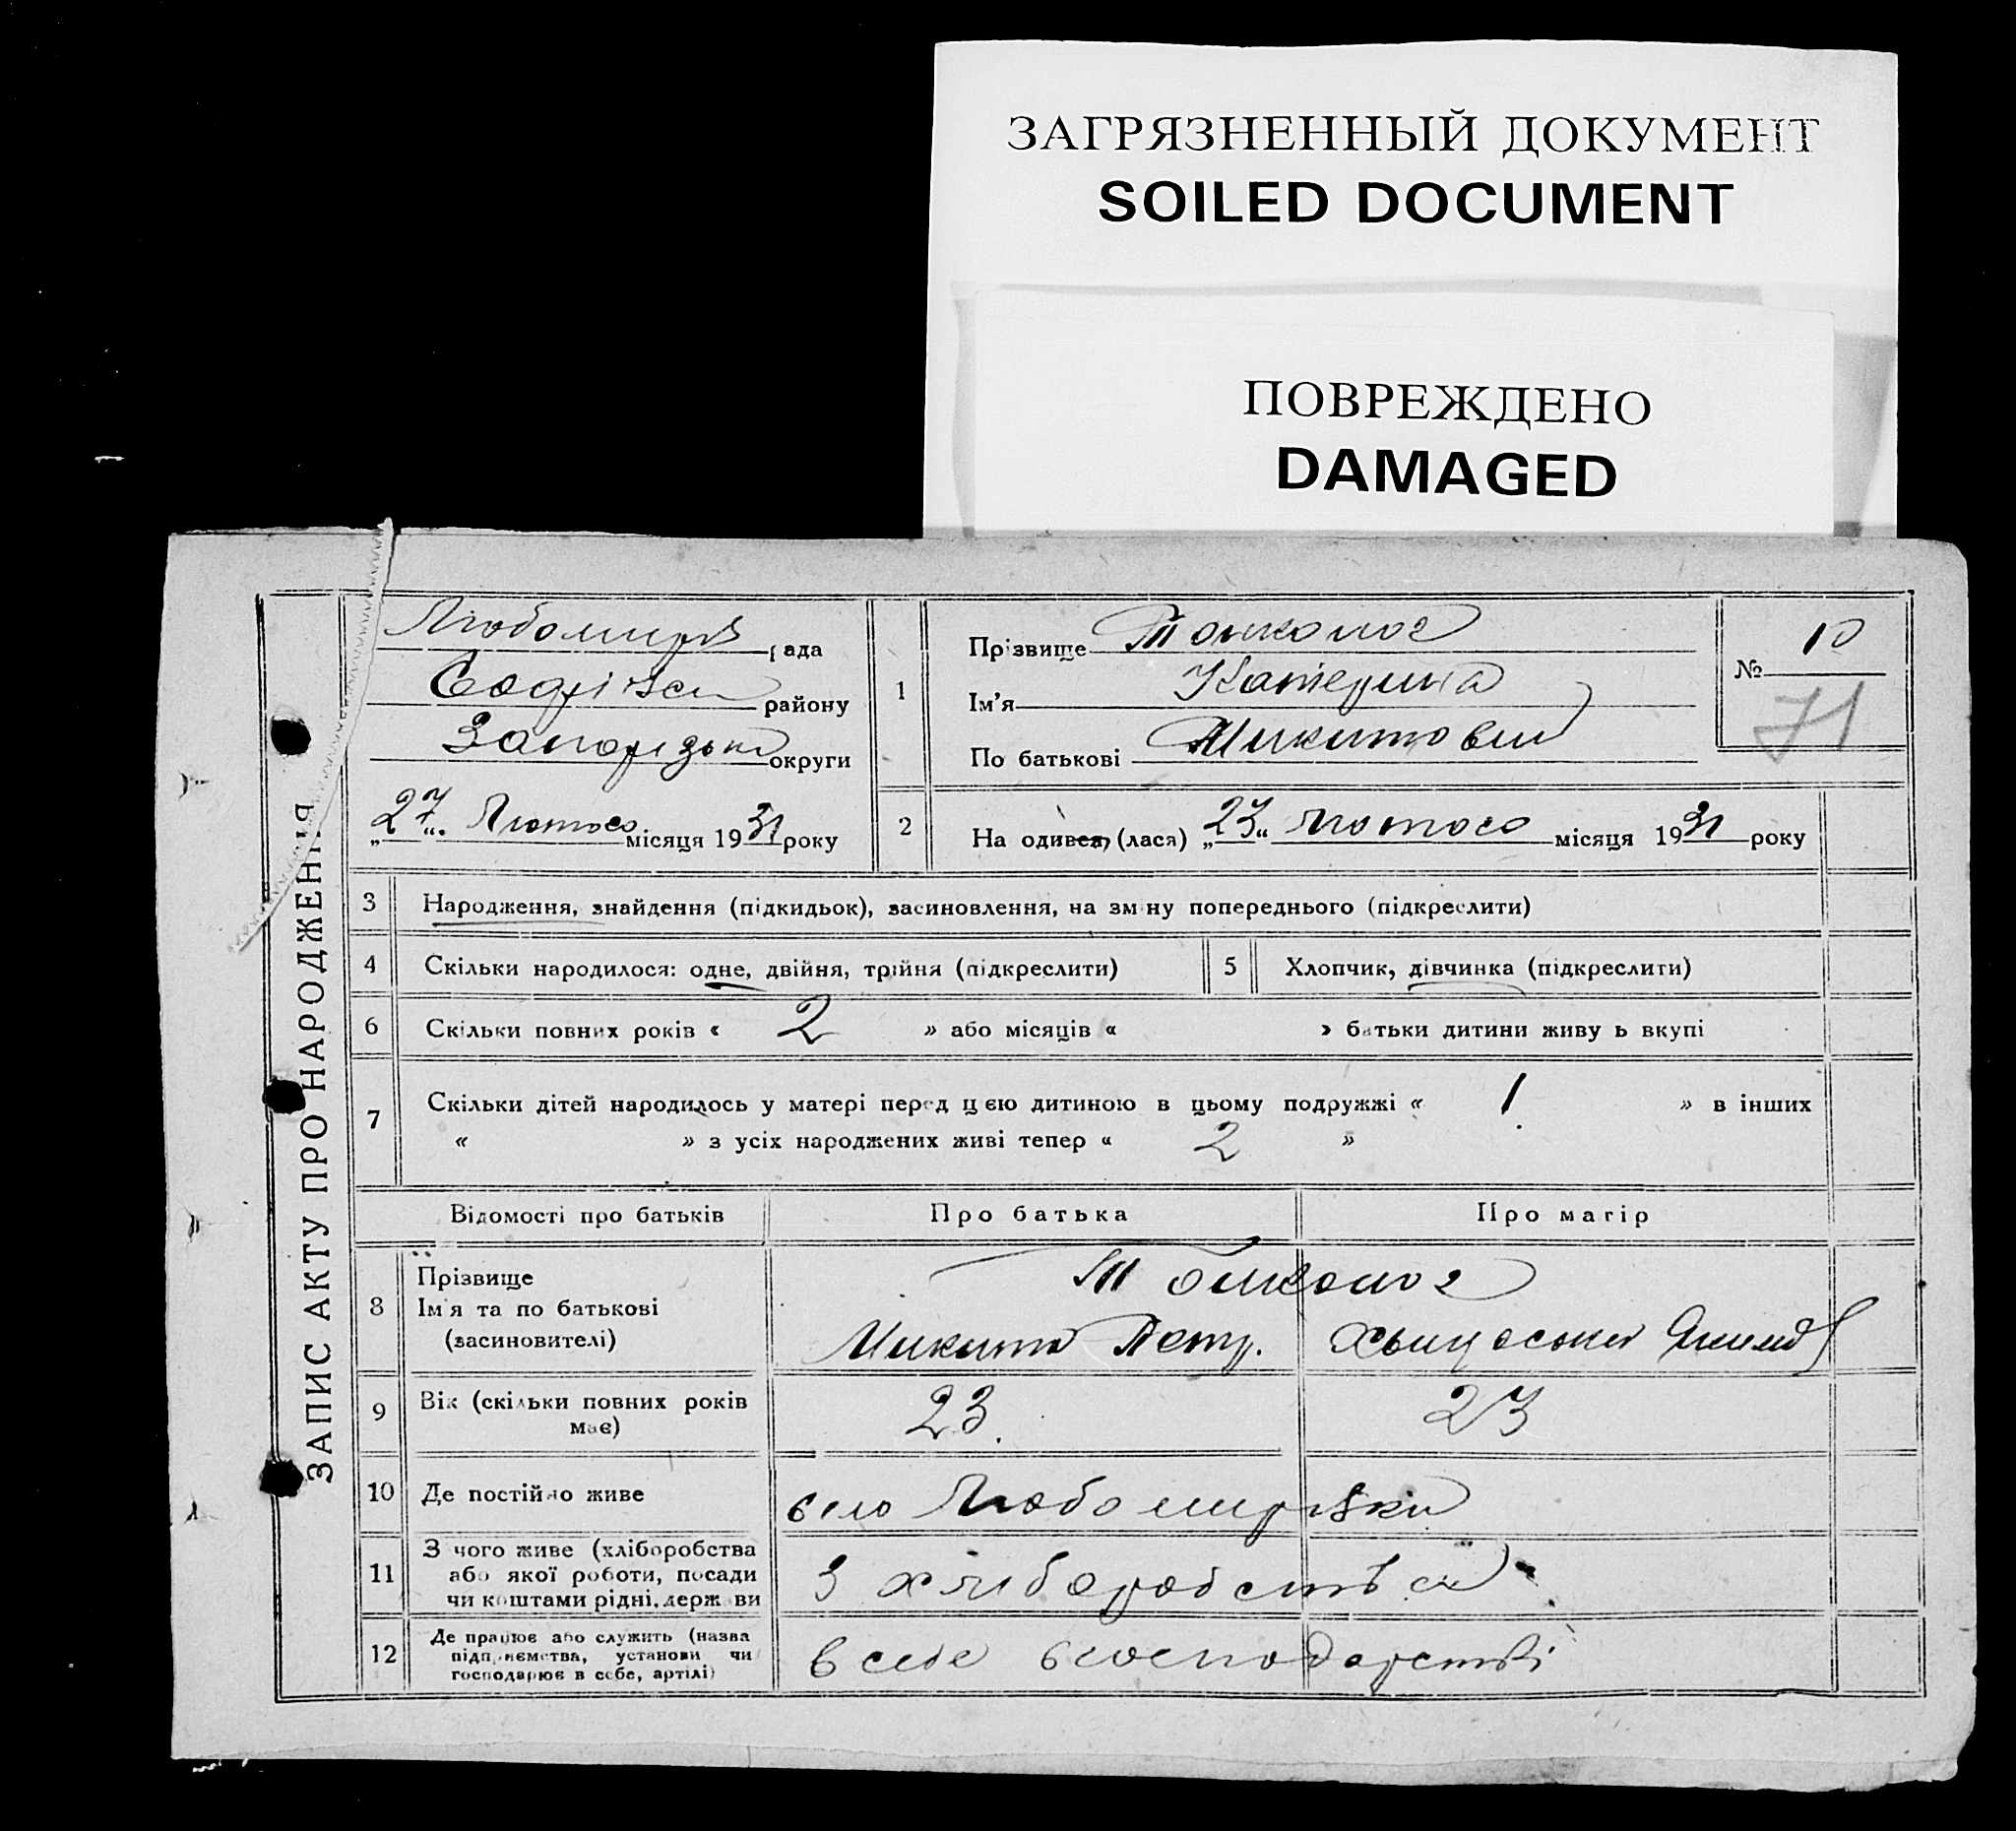 ЗАГРЯЗНЕННЫЙ ДОКУМЕНТ
SOILED DOCUMENT
ПОВРЕЖДЕНО
DAMAGED
ЗАПИС АКТУ ПРО НАРОДЖЕННЯ
Любомирів рада
району
Запорізької округи
„27“ Лютого місяця 1931 року
1
Прізвище Тонконог
Ім'я Катерина
По батькові Микитовна
№ 10
71
2
На одився, (лася) „23“ Лютого місяця 1931 року
3 Народження, знайдення (підкидьок), засиновлення, на зміну попереднього (підкреслити)
4 Скільки народилося: одне, двійня, трійня (підкреслити)
5 Хлопчик, дівчинка (підкреслити)
6 Скільки повних років « 2 » або місяців « » батьки дитини живу ь вкупі
7 Скільки дітей народилось у матері перед цією дитиною в цьому подружжі « 1 » в інших
« » з усіх народжених живі тепер « 2 »
Відомості про батьків Про батька Про матір
8 Прізвище
Ім'я та по батькові
(засиновителі)
Тонконог
Микита Петр.
9 Вік (скільки повних років
має)
23. 23
10 Де постійно живе
село Любомирівки
11 З чого живе (хліборобства
або якої роботи, посади
чи коштами рідні, держави
З хліборобства
12 Де працює або служить (назва
підприємства, установи чи
господарює в себе, артілі)
в себе в господарстві